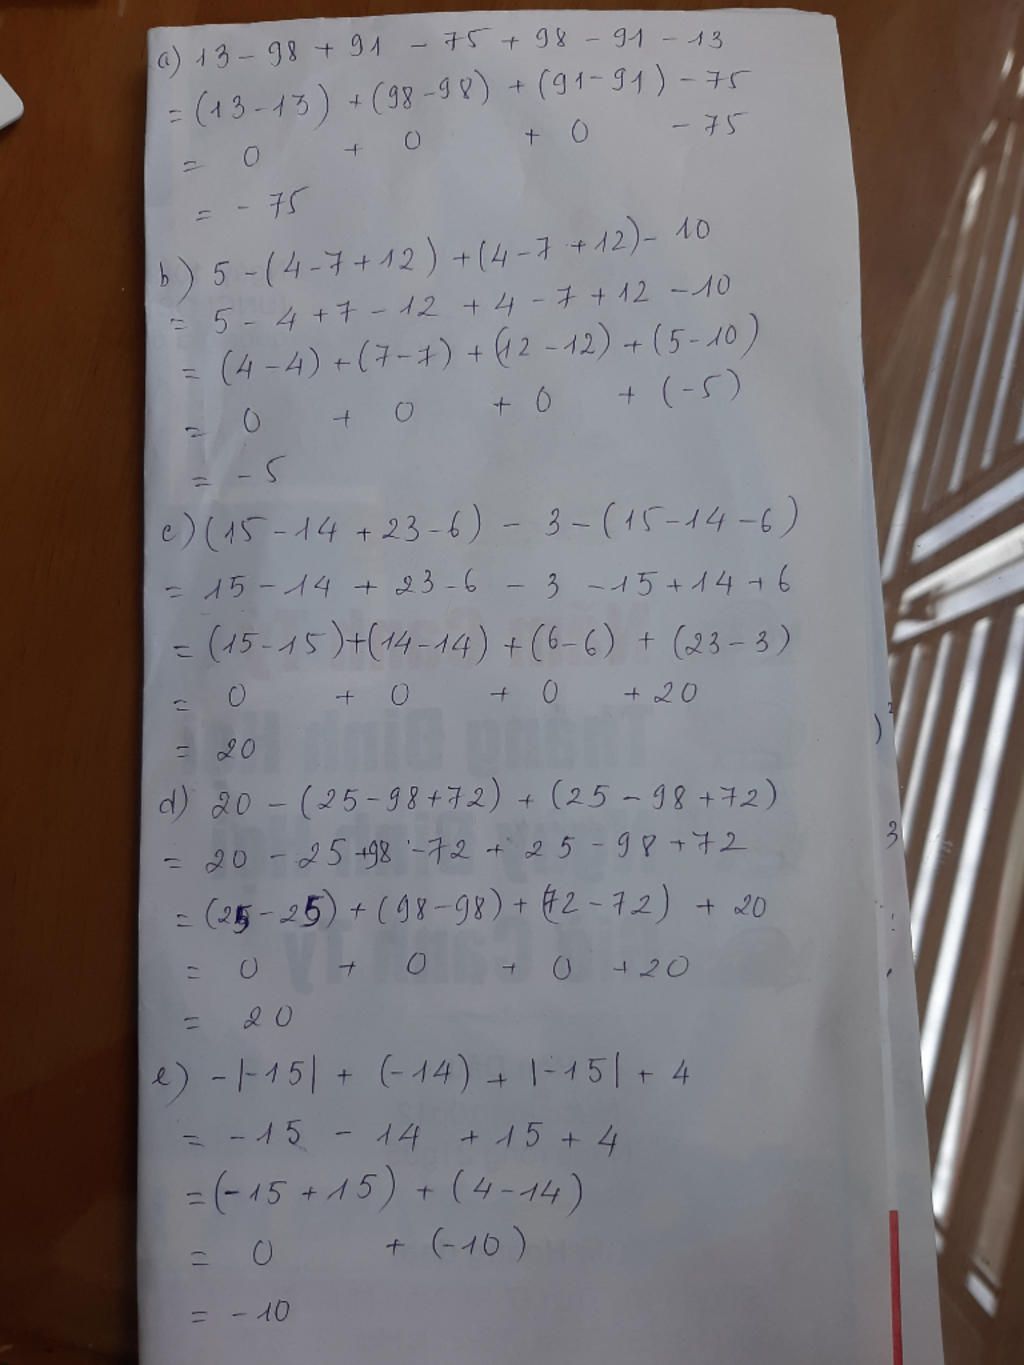 a) 13 - 98 + 91 - 75 + 98 - 91 - 13
= (13 - 13) + (98 - 98) + (91 - 91) - 75
= 0 + 0 + 0 - 75
= - 75
b) 5 - (4 - 7 + 12) + (4 - 7 + 12) - 10
= 5 - 4 + 7 - 12 + 4 - 7 + 12 - 10
= (4 - 4) + (7 - 7) + (12 - 12) + (5 - 10)
= 0 + 0 + 0 + (-5)
= - 5
c) (15 - 14 + 23 - 6) - 3 - (15 - 14 - 6)
= 15 - 14 + 23 - 6 - 3 - 15 + 14 + 6
= (15 - 15) + (14 - 14) + (6 - 6) + (23 - 3)
= 0 + 0 + 0 + 20
= 20
d) 20 - (25 - 98 + 72) + (25 - 98 + 72)
= 20 - 25 + 98 - 72 + 25 - 98 + 72
= (25 - 25) + (98 - 98) + (72 - 72) + 20
= 0 + 0 + 0 + 20
= 20
e) - |-15| + (-14) + |-15| + 4
= - 15 - 14 + 15 + 4
= (-15 + 15) + (4 - 14)
= 0 + (-10)
= - 10